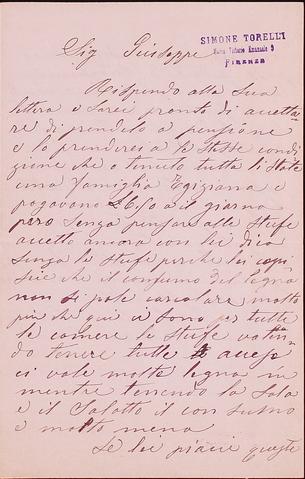 SIMONE TORELLI
Vittorio Emanuele 9
FIRENZE
Sig Guiseppe
Rispendo alla Sua
lettera e Sarei pronto di accetta
re di prendelo a pensione
e lo prenderei a le Stesse condi
zione che o tenuto tutta l'istate
una famiglia Egiziana e
pagavano £6,50 a il giorno
pero Senza pensare alle Stufe
accetto ancora con lei dico
Senza le Stufe perche lei capi
sie che il consumo del legna
non si pole carcolare molto
piu che qui ci sono per tutte
le camere le Stufe
do tenere tutte accese
ci vole molte legna in
mentre tenendo la Sala
e il Salotto il con sumo
e molto meno
Se lei piacie queste